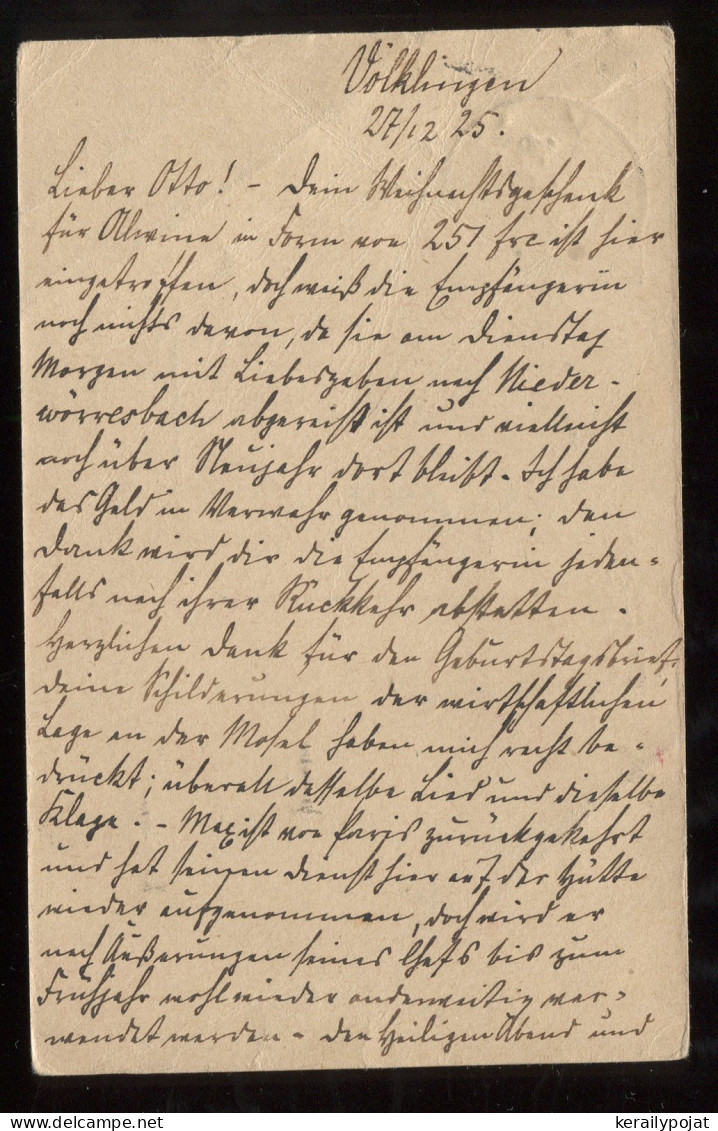 Völklingen
27/12 25.
Lieber Otto! – Dein Weihnachtsgeschenk
für Alwine in Form von 251 frc ist hier
eingetroffen, doch weiß die Empfängerin
noch nichts davon, da sie am Dienstag
Morgen mit Liebesgaben nach Nieder-
wörresbach abgereist ist und vielleicht
noch über Neujahr dort bleibt. Ich habe
das Geld in Verwahr genommen; den
Dank wird dir die Empfängerin jeden-
falls nach ihrer Rückkehr abstatten.
Herzlichen Dank für den Geburtstagsbrief.
Deine Schilderungen der wirtschaftlichen
Lage an der Mosel haben mich recht be-
drückt; überall dasselbe Lied und dieselbe
Klage. – Max ist von Paris zurückgekehrt
und hat seinen Dienst hier auf der Hütte
wieder aufgenommen, doch wird er
nach Äußerungen seines Chefs bis zum
Frühjahr wohl wieder anderweitig ver-
wendet werden. – Den Heiligen Abend und
www.kerailypojat.com